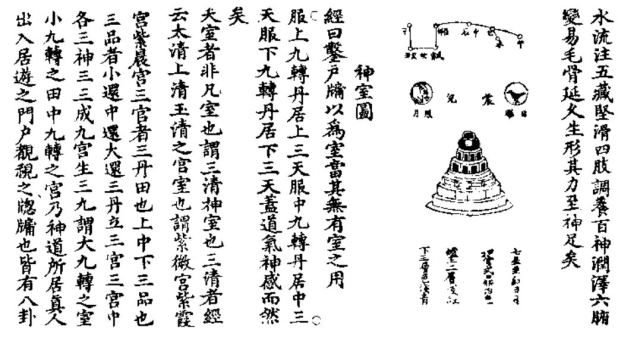 水流注五藏堅滑四肢調養百神潤澤六腑
變易毛骨延久生形其力至神足矣
震
兌
神室圖
經曰鑿戶牖以為室當其無有室之用
服上九轉丹居上三天服中九轉丹居中三
天服下九轉丹居下三天蓋道氣神感而然
矣
夫室者非凡室也謂三清神室也三清者經
云太清上清玉清之宮室也謂紫微宮紫霞
宮紫晨宮三宮者三丹田也上中下三品也
三品者小還中還大還三丹立三宮三宮中
各三神三三成九宮生三九謂大九轉之室
小九轉之田中九轉之宮乃神道所居真人
出入居遊之門戶觀視之牕牖也皆有八卦